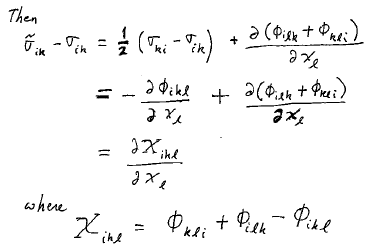 Then
σ̃_{ik} - σ_{ik} = 1/2 (σ_{ki} - σ_{ik}) + ∂(ϕ_{ilk} + ϕ_{kli})/∂x_l
= - ∂ϕ_{ikl}/∂x_l + ∂(ϕ_{ilk} + ϕ_{kli})/∂x_l
= ∂χ_{ikl}/∂x_l
where
χ_{ikl} = ϕ_{kli} + ϕ_{ilk} - ϕ_{ikl}